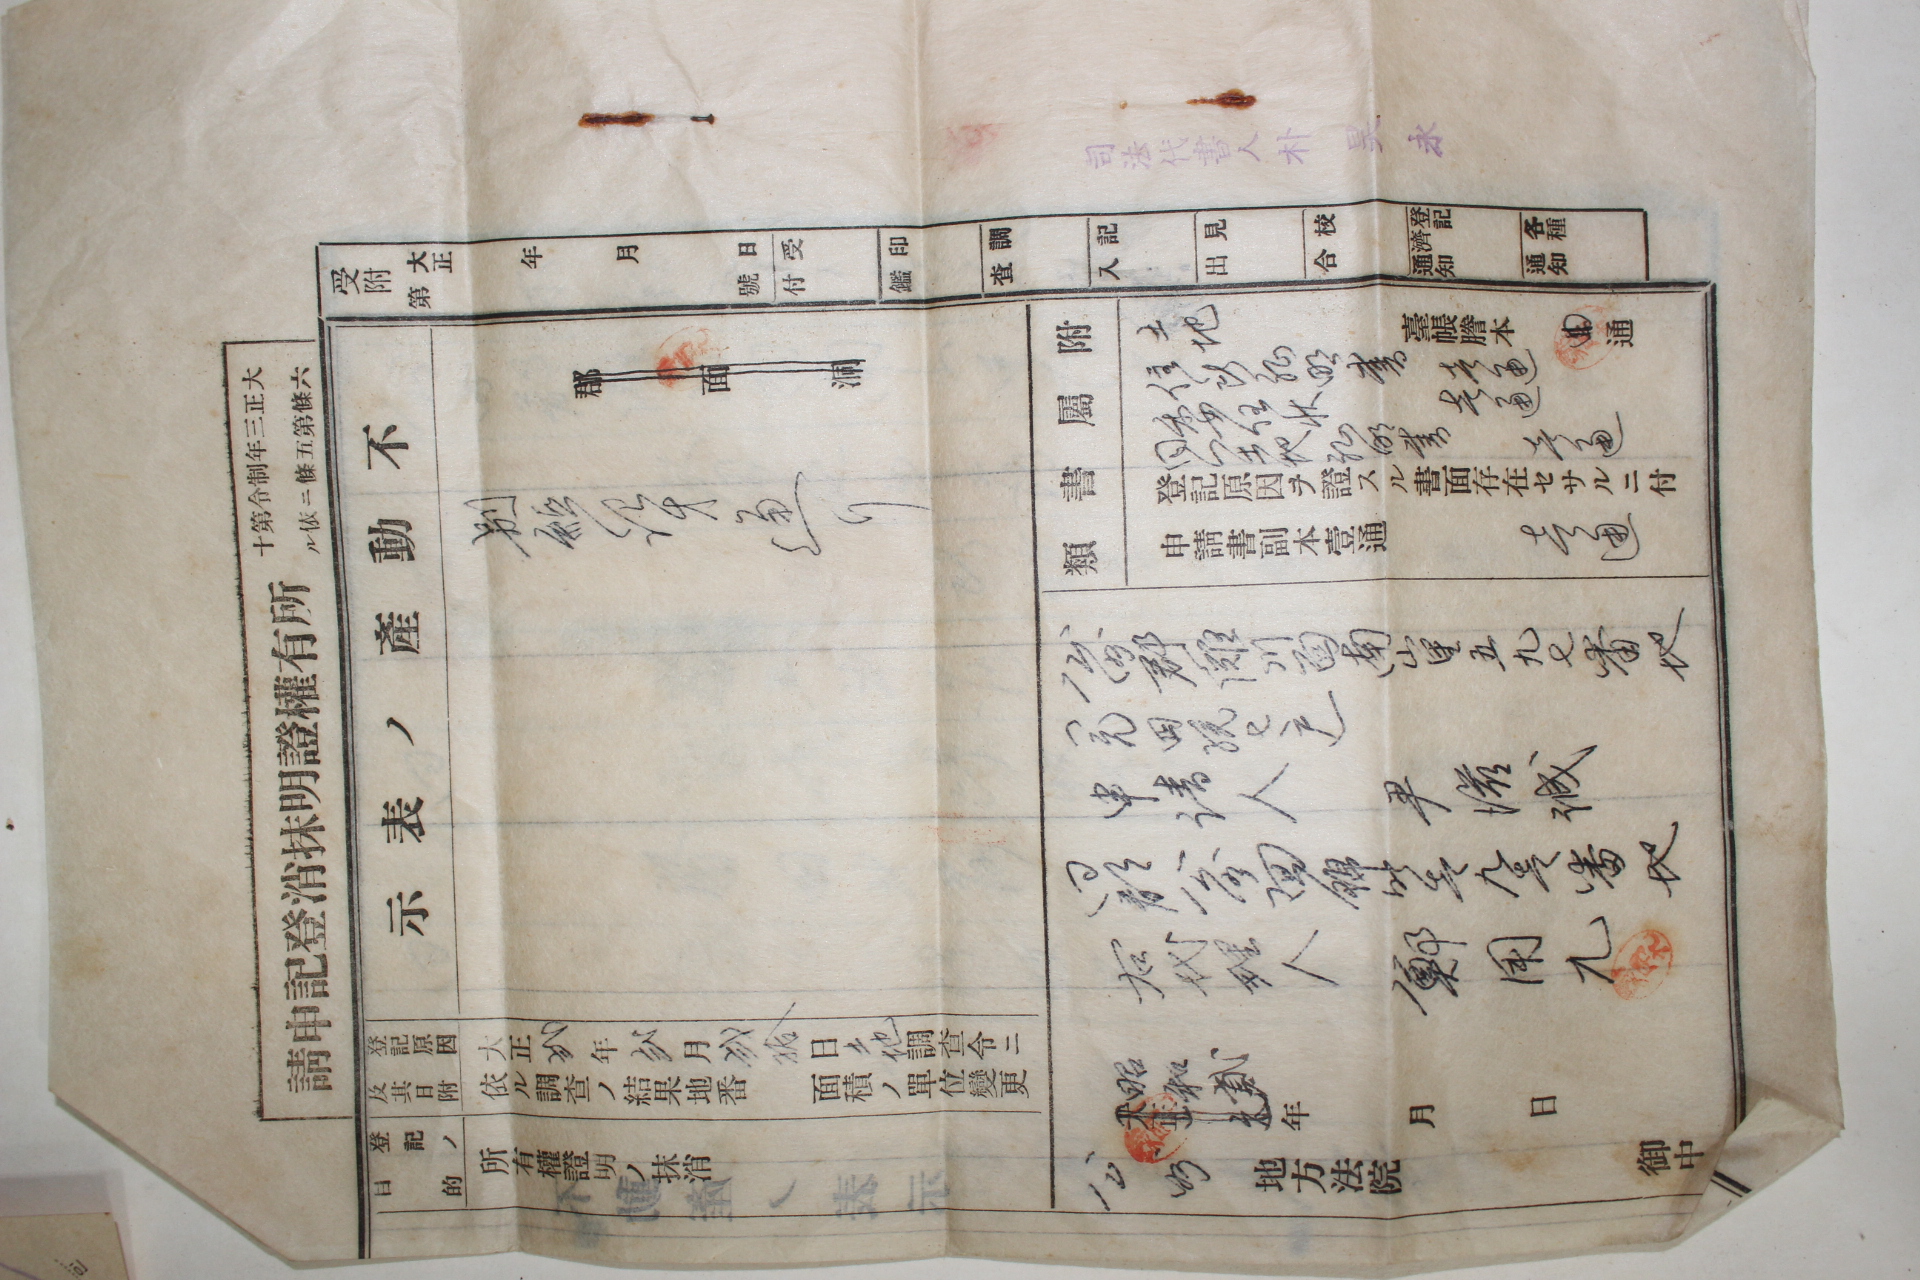 大正三年制令第十
六條第五條ニ依ル
所有權證明抹消登記申請
受附
大正 年 月 日
第 號
受付
印鑑
調查
記入
見出
校合
登記濟通知
各種通知
不動產ノ表示
郡 面 洞
別紙記才通リ
登記原因
及其日附
大正 年 貳月貳拾日土地調查令ニ
依ル調查ノ結果地番 面積ノ單位變更
登記ノ
目的
所有權證明ノ抹消
附屬書類
土地 臺帳謄本 通
住所証明書 壱通
委任狀 壱通
同一土地証明書 壱通
登記原因ヲ證スル書面存在セサルニ付
申請書副本壹通 壱通
公州郡灘川面南山里五九七番地
申請人 尹滋誠
同郡 面錦町壱九壱番地
右代理人 鄭用九
昭和貳
大正 年 月 日
公州 地方法院 御中
司法代書人朴昊永
不動產ノ表示